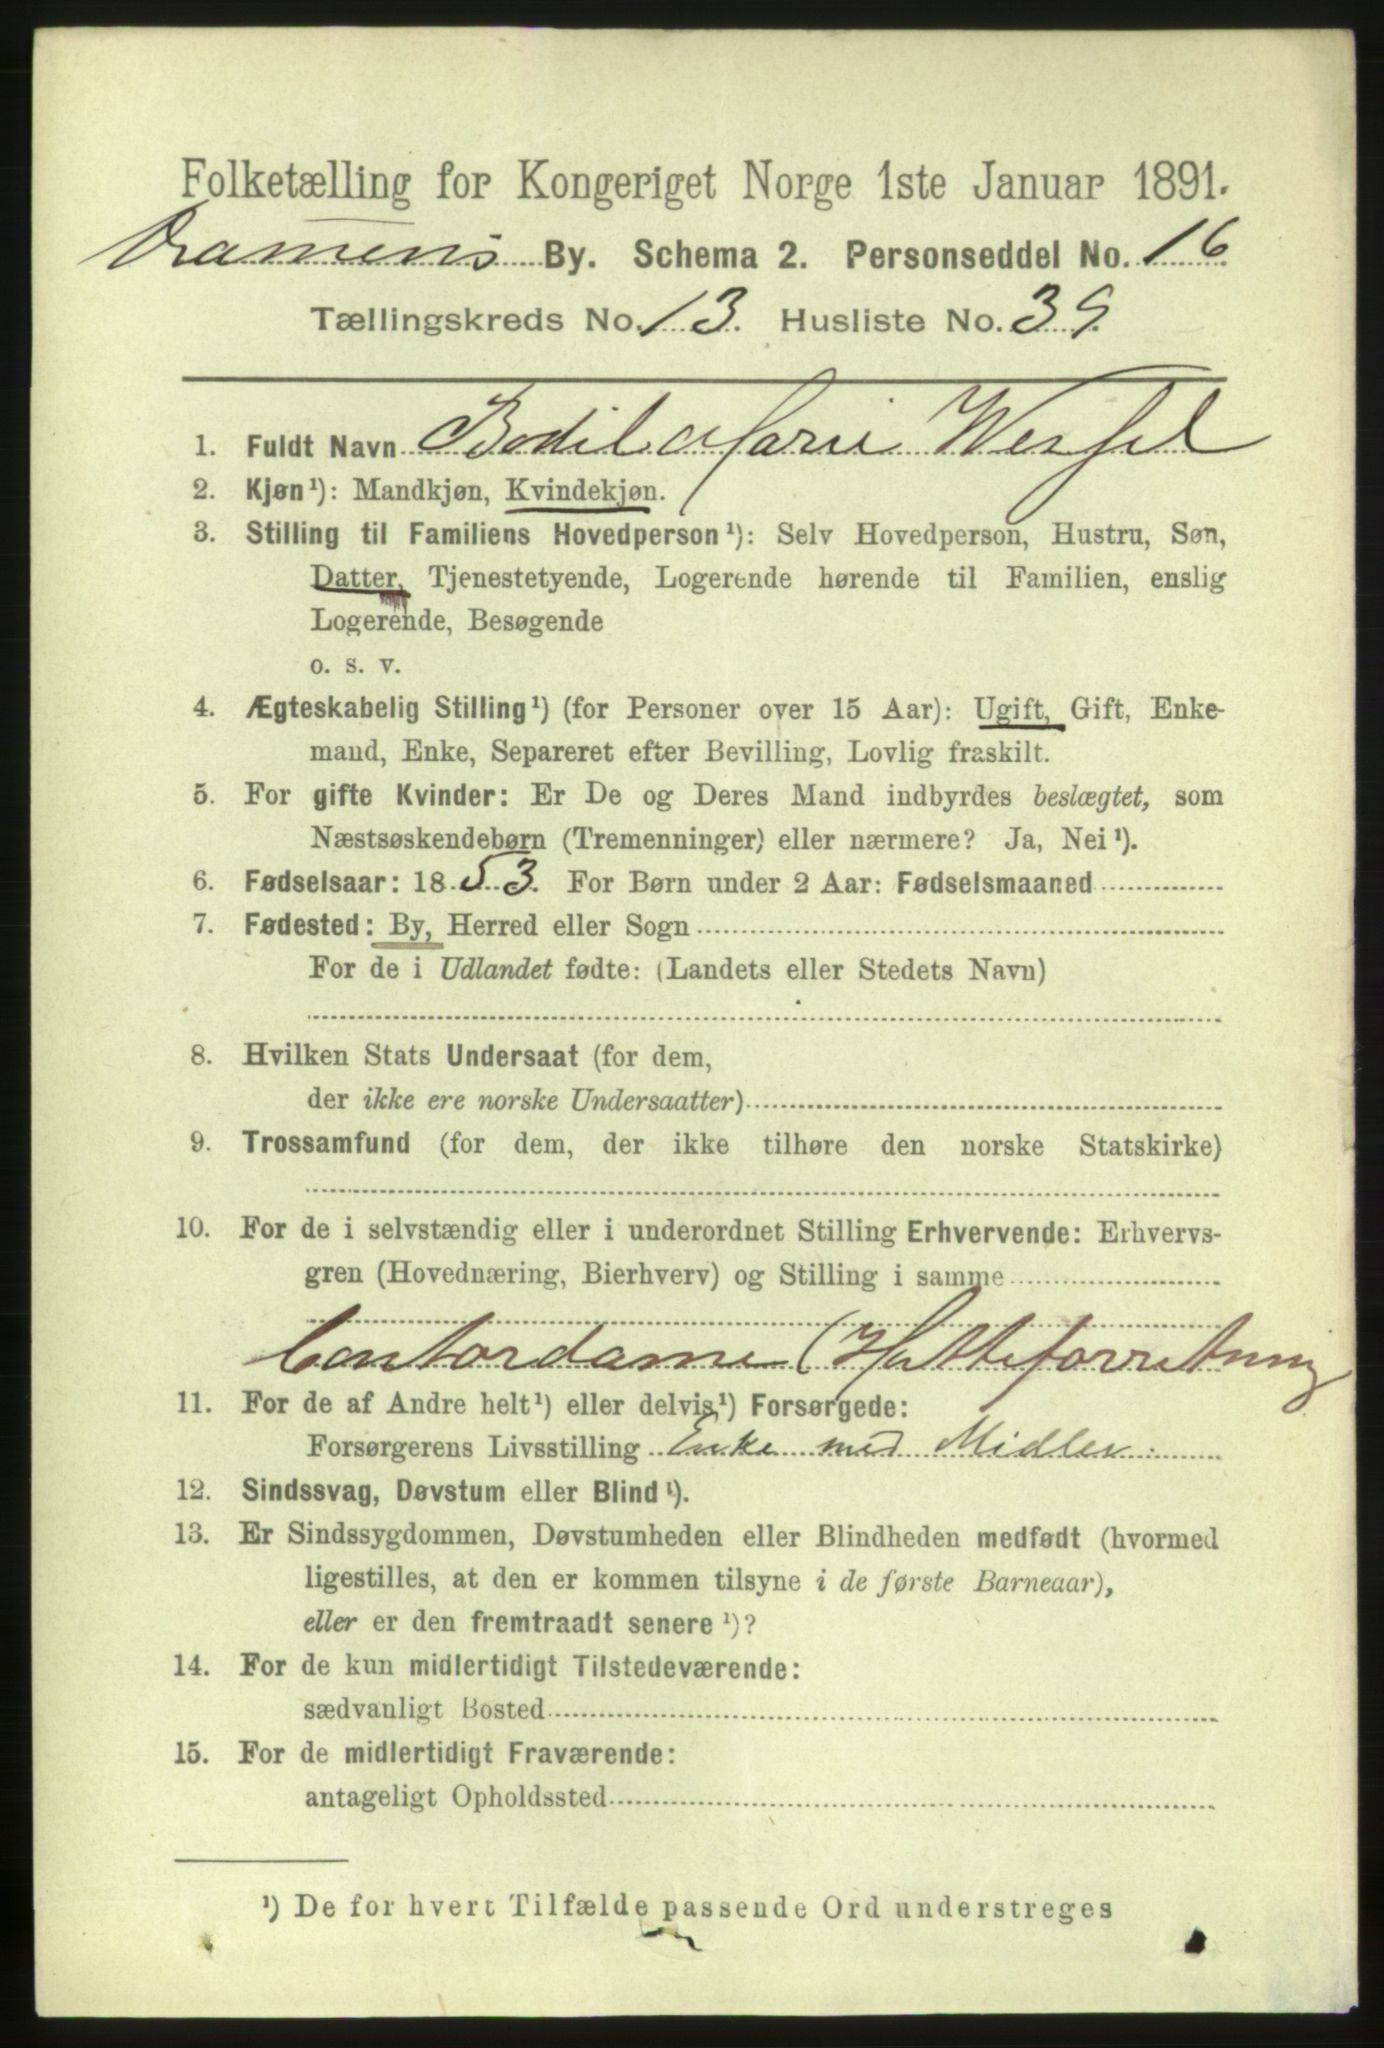 Folketælling for Kongeriget Norge 1ste Januar 1891.
Dramens By. Schema 2. Personseddel No. 16
Tællingskreds No. 13. Husliste No. 39.
1. Fuldt Navn Bodil Marie Wessel
2. Kjøn¹): Mandkjøn, Kvindekjøn.
3. Stilling til Familiens Hovedperson¹): Selv Hovedperson, Hustru, Søn,
Datter, Tjenestetyende, Logerende hørende til Familien, enslig
Logerende, Besøgende
o. s. v.
4. Ægteskabelig Stilling¹) (for Personer over 15 Aar): Ugift, Gift, Enke-
mand, Enke, Separeret efter Bevilling, Lovlig fraskilt.
5. For gifte Kvinder: Er De og Deres Mand indbyrdes beslægtet, som
Næstsøskendebørn (Tremenninger) eller nærmere? Ja, Nei¹).
6. Fødselsaar: 1853. For Børn under 2 Aar: Fødselsmaaned
7. Fødested: By, Herred eller Sogn
For de i Udlandet fødte: (Landets eller Stedets Navn)
8. Hvilken Stats Undersaat (for dem,
der ikke ere norske Undersaatter)
9. Trossamfund (for dem, der ikke tilhøre den norske Statskirke)
10. For de i selvstændig eller i underordnet Stilling Erhvervende: Erhvervs-
gren (Hovednæring, Bierhverv) og Stilling i samme
Contordame (Hatteforretning
11. For de af Andre helt¹) eller delvis¹) Forsørgede:
Forsørgerens Livsstilling Enke med Midler.
12. Sindssvag, Døvstum eller Blind¹).
13. Er Sindssygdommen, Døvstumheden eller Blindheden medfødt (hvormed
ligestilles, at den er kommen tilsyne i de første Barneaar),
eller er den fremtraadt senere¹)?
14. For de kun midlertidigt Tilstedeværende:
sædvanligt Bosted
15. For de midlertidigt Fraværende:
antageligt Opholdssted
¹) De for hvert Tilfælde passende Ord understreges